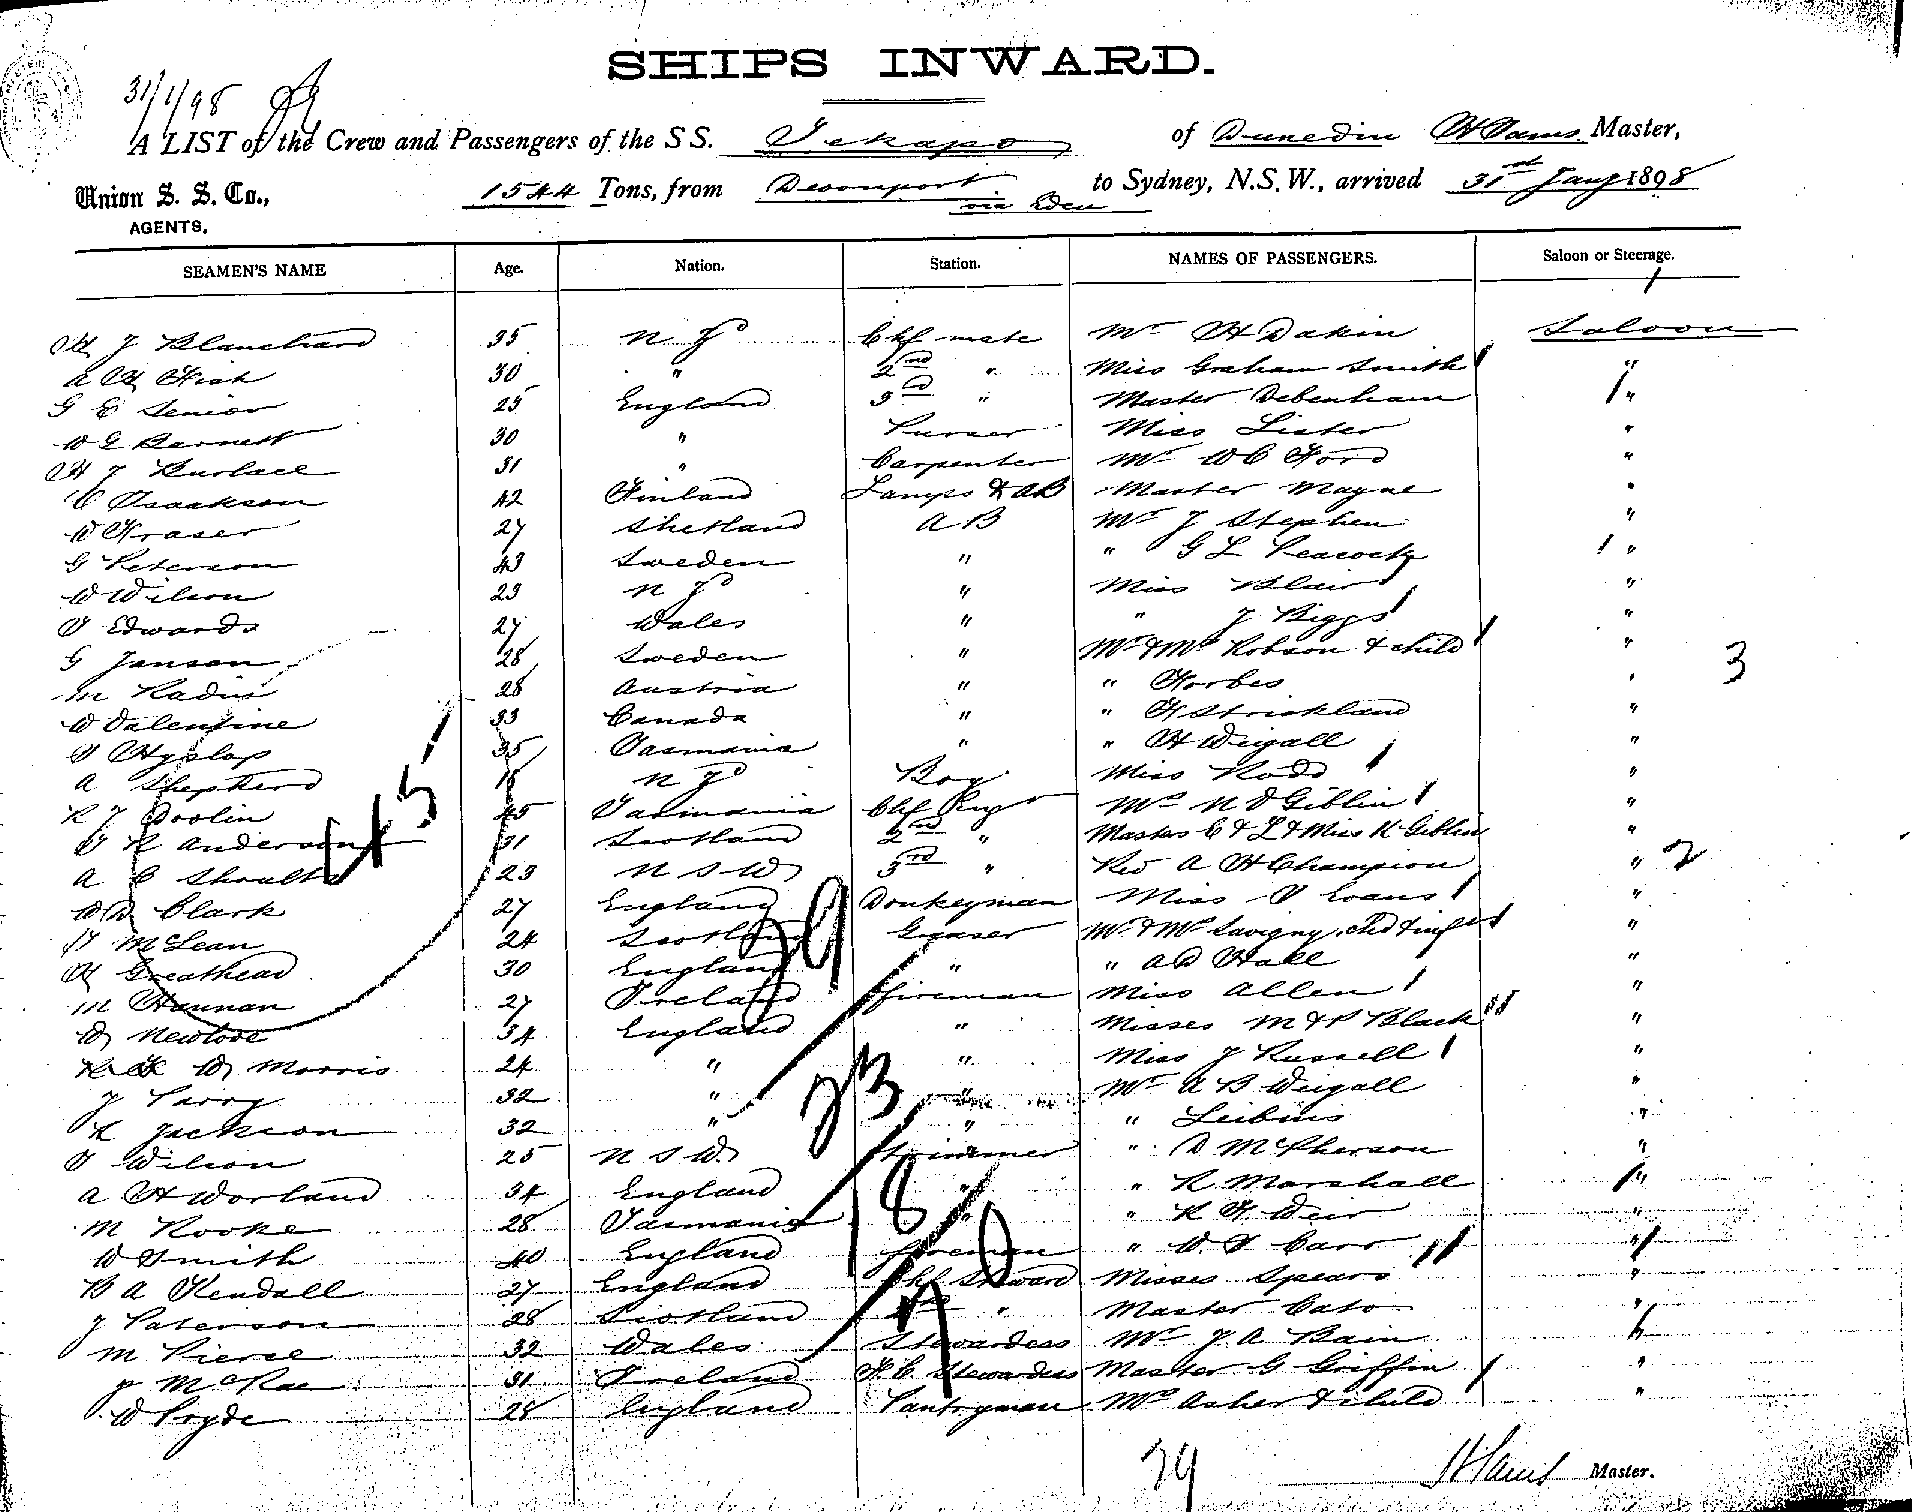 SHIPS INWARD.
31/1/98
A LIST of the Crew and Passengers of the S S. Tekapo of Dunedin Master,
Union S. S. Co., 1544 Tons, from Devonport via Eden to Sydney, N.S.W., arrived 31st Jany 1898
AGENTS.
SEAMEN'S NAME Age. Nation. Station. NAMES OF PASSENGERS. Saloon or Steerage.
J Blanchard 35 N Z Chf mate Mr H Dakin Saloon
A 30 " 2nd " Miss Graham Smith "
G E Senior 25 England 3rd " Master Debenham "
W G Barnett 30 " Purser Miss Lister "
H J Burlace 31 " Carpenter Mr W C Ford "
C Isaakson 42 Finland Lamps & AB Master Mayne "
W Fraser 27 Shetland A B Mr J Stephen "
G Peterson 43 Sweden " " G L Peacock "
W Wilson 23 N Z " Miss Blair "
T Edwards 27 Wales " " J Biggs "
G Janson 28 Sweden " Mr & Mrs Robson & child " 3
M Radus 28 Austria " " Forbes "
W Valentine 33 Canada " " F Strickland "
T Hyslop 35 Tasmania " " H Weigall "
A Shepherd N Z Boy Miss Rodd "
R J Doolin 45 Tasmania Chf Engr Mrs N D Giblin "
R Anderson 31 Scotland 2nd " Masters C & L & Miss K Giblin "
A C 23 N S W 3rd " Rev A H Champion " 2
W D Clark 27 England Donkeyman Miss T Evans "
McLean 24 Scotland Greaser Mr & Mrs Savigny, chd & inft "
H Greathead 30 England " " A D Hall "
M Hannan 27 Ireland fireman Miss Allen "
W Newlove 34 England " Misses M & P Black "
W Morris 24 " " Miss J Russell "
J Parry 32 " " Mr A B Weigall "
K Jackson 32 " " " Leibius "
T Wilson 25 N S W Trimmer " D McPherson "
A H Worland 34 England " " R Marshall "
M Rooke 28 Tasmania " " R F Weir "
W Smith 40 England foreman " W T Carr "
B A Kendall 27 England Chf Steward Misses Spears "
J Paterson 28 Scotland 2nd " Master Cato "
M Pierce 32 Wales Stewardess Mr J A Bain
J McRae 31 Ireland F. C. Stewardess Master G Griffin "
W Pryde 28 England Pantryman Mrs Asher & child "
39 Master.